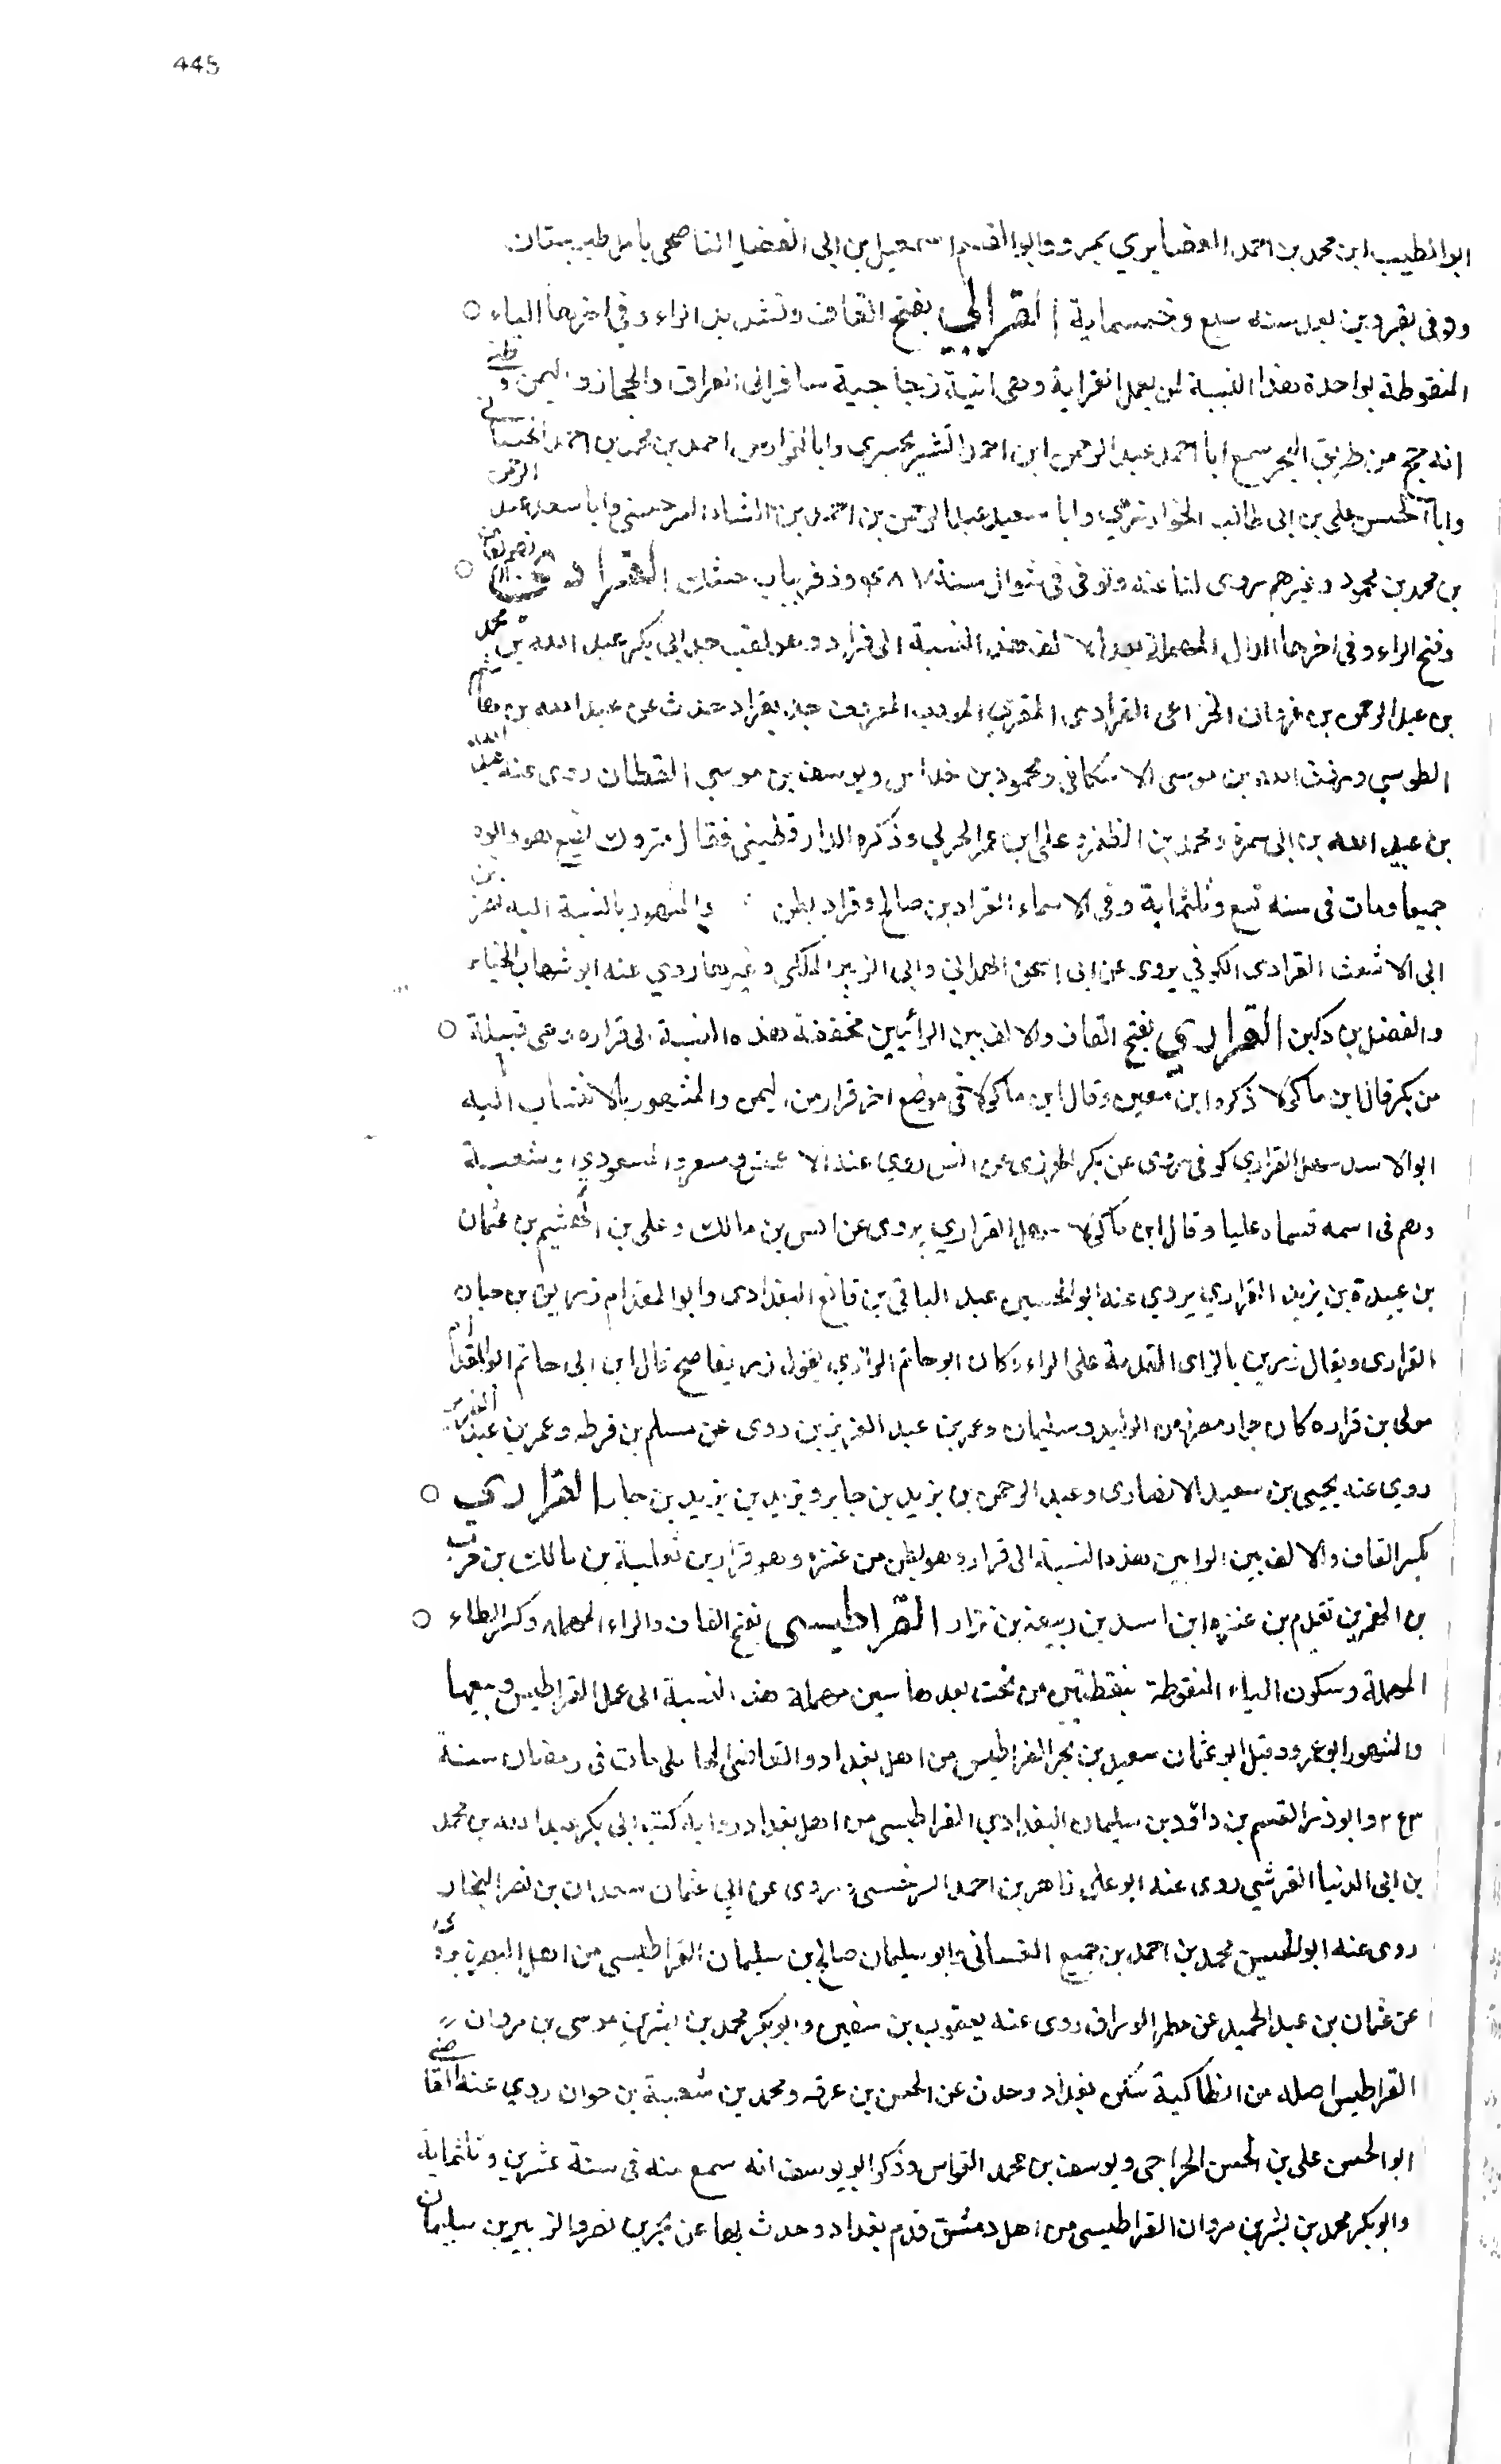 445
ابو الطيب ابن محمد بن احمد الغضايري بمرو وابو القسم اسمعيل بن ابى الفضل الناصحى بامل طبرستان
وتوفى بقزوين بعد سنه سبع وخمسماية القرابي بفتح القاف وتشديد الراء وفى اخرها الباء
المنقوطة بواحدة هذا النسبة لمن يعمل القرابة وهى انية زجاجية سافر الى العراق والحجاز واليمن و
انه حج من طريق البحر سمع ابا احمد عبد الرحمن ابن احمد الشيرنخشيرى وابا الفوارس احمد بن محمد بن احمد
وابا الحسن على بن ابى طالب الخوارزمي وابا سعيد عبد الرحمن بن احمد بن الشاه وابا سعد عبد الرحمن
بن محمد بن محمود وغيرهم روى لنا عنه وتوفى فى شوال سنة القراد بضم القاف
وفتح الراء وفى اخرها الدال المهملة بعد الالف هذه النسبة الى قراد وهو لقب جد ابى بكر عبد الله بن محمد
بن عبد الرحمن بن غزوان الخزاعى القرادى المؤدب المعروف جده بقراد حدث عن عبد الله بن هاشم
الطوسي ورزق الله بن موسى الاسكافى ومحمود بن خداش ويوسف بن موسى القطان روى عنه عبد الله
بن عبيد الله بن ابى سمرة ومحمد بن المظفر وعلى ابن عمر الحربي وذكره الدارقطينى فقال متروك يضع هو وابوه
جميعا ومات فى سنه تسع وثلثماية وفى الاسماء القراد بن صالح وقراد بطن والمشهور بالنسبة اليه نصر بن
ابى الاشعث القرادى الكوفي يروى عن ابى اسحق الهمداني وابى الزبير المكى وغيرهما روي عنه ابو شهاب الحناط
والفضل بن دكين القراري بفتح القاف والالف بين الرائيين مخففة هذه النسبة الى قراره وهى قبيلة
من بكر قال ابن ماكولا ذكره ابن معين وقال ابن ماكولا فى موضع اخر قرار من اليمن والمشهور بالانتساب اليه
ابو الاسد سهل القراري كوفى يروى عن بكر الجزرى عن انس روى عنه الاعمش ومسعر والمسعودي وشعبة
وهم فى اسمه فسماه عليا وقال ابن ماكولا سهل القراري يروى عن انس بن مالك وعلى بن الهيثم بن عثمان
بن عبيدة بن يزيد القراري يروي عنه ابو الحسين عبد الباقى بن قانع البغدادى وابو المقدام زريق بن حيان
القرارى ويقال رزيق بالزاى المقدمة على الراء وكان ابو حاتم الرازي يقول زريق اصح قال ابن ابى حاتم ابو المقدام
مولى بن قراره كان جواز مصر من الوليد وسليمان وعمر بن عبد العزيز بن روى عن مسلم بن قرظه وعمر بن عبد العزيز
روي عنه يحيى بن سعيد الانصارى وعبد الرحمن بن يزيد بن جابر ويزيد بن يزيد بن جابر القراري
بكسر القاف والالف بين الرايين هذه النسبة الى قرار وهو بطن من عنزه وهو قرار بن ثعلبة بن مالك بن حرب
بن يقدم بن عنزه ابن اسد بن ربيعة بن نزار القراطيسى بفتح القاف والراء المهمله وكسر الطاء
المهملة وسكون الياء المنقوطة بنقطتين من تحت بعدها سين مهملة هذه النسبة الى عمل القراطيس وبيعها
والمشهور ابو عمرو وقيل ابو عثمان سعيد بن بحر القراطيسى من اهل بغداد مات فى رمضان سنة
وابو ذر القسم بن داؤد بن سليمان البغدادي القراطيسى من اهل بغداد رواية كتب ابى بكر عبد الله بن محمد
بن ابى الدنيا القرشي روى عنه ابو على زاهر بن احمد السرخسى يروى عن ابي عثمان سعدان بن نصر
روى عنه ابو الحسين محمد بن احمد بن جميع الغسانى وابو سليمان صالح بن سليمان القراطيسى من اهل البصرة يروى
عن عثمان بن عبد الحميد عن مطر الوراق روى عنه يعقوب بن سفين وابو بكر محمد بن بشر بن موسى بن مروان
القراطيسى اصله من انطاكية سكن بغداد وحدث عن الحسن بن عرفه ومحمد بن شعبة بن جوان روي عنه القاضى
ابو الحسن على بن الحسن الجراحى ويوسف بن عمر القواس وذكر ابو يوسف انه سمع منه فى سنة عشرين وثلثماية
وابو بكر محمد بن بشر بن مروان القراطيسى من اهل دمشق قدم بغداد وحدث بها عن بحر بن نصر والربيع بن سليمان